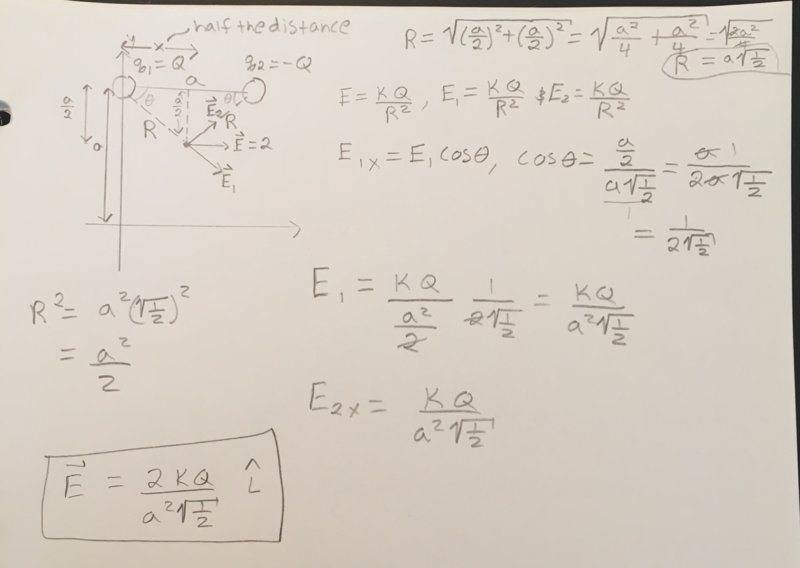 half the distance
q₁ = Q
q₂ = -Q
a
a/2
a
θ
θ
a/2
R
R
E⃗₂
E⃗ = 2
E⃗₁
R = √((a/2)² + (a/2)²) = √(a²/4 + a²/4) = √(2a²/4)
R = a√(1/2)
E = KQ/R² , E₁ = KQ/R² & E₂ = KQ/R²
E₁ₓ = E₁ cosθ, cosθ = (a/2)/(a√(1/2)) = a 1/(2a√(1/2))
= 1/(2√(1/2))
R² = a²(√(1/2))²
= a²/2
E₁ = KQ/(a²/2) 1/(2√(1/2)) = KQ/(a²√(1/2))
E₂ₓ = KQ/(a²√(1/2))
E⃗ = 2KQ/(a²√(1/2)) î